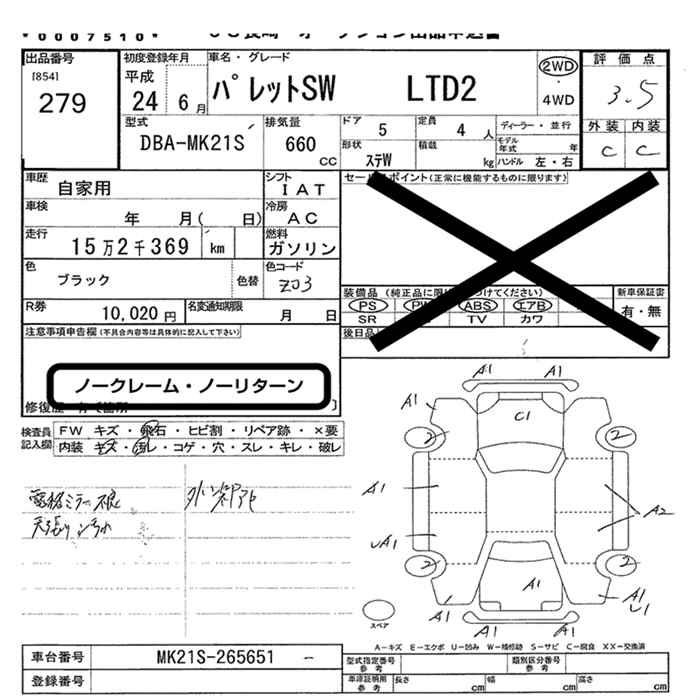 *0007510*
出品番号
[854]
279
初度登録年月
平成
24 6月
車名・グレード
パレットSW LTD2
2WD
・
4WD
評価点
3.5
外装 内装
C C
型式
DBA-MK21S
排気量
660
cc
ドア 5
定員 4 人
ディーラー・並行
モデル年式 年
形状
ステW
積載 kg
ハンドル 左・右
車歴
自家用
シフト
IAT
車検
年 月( 日)
冷房
AC
走行
15万2千369 km
燃料
ガソリン
色
ブラック
色替
色コード
Z03
R券
10,020円
名変通知期限
月 日
セールスポイント(正常に機能するものに限ります)
新車保証書
有・無
PS ABS エアB
SR TV カワ
注意事項申告欄(不具合内容等は具体的に記入して下さい)
ノークレーム・ノーリターン
検査員
記入欄
FW キズ・飛石・ヒビ割・リペア跡・×要
内装 キズ・汚レ・コゲ・穴・スレ・キレ・破レ
電格ミラー不良
A1 A1
A1
C1
2 2
A1
A2
A1
2 2
A1
A1
A1
U1
A1 A1
スペア
A−キズ E−エクボ U−凹み W−補修跡 S−サビ C−腐食 XX−交換済
車台番号
MK21S-265651 −
登録番号
型式指定番号
参考
類別区分番号
参考
車庫証明用
参考
長さ cm
幅 cm
高さ cm